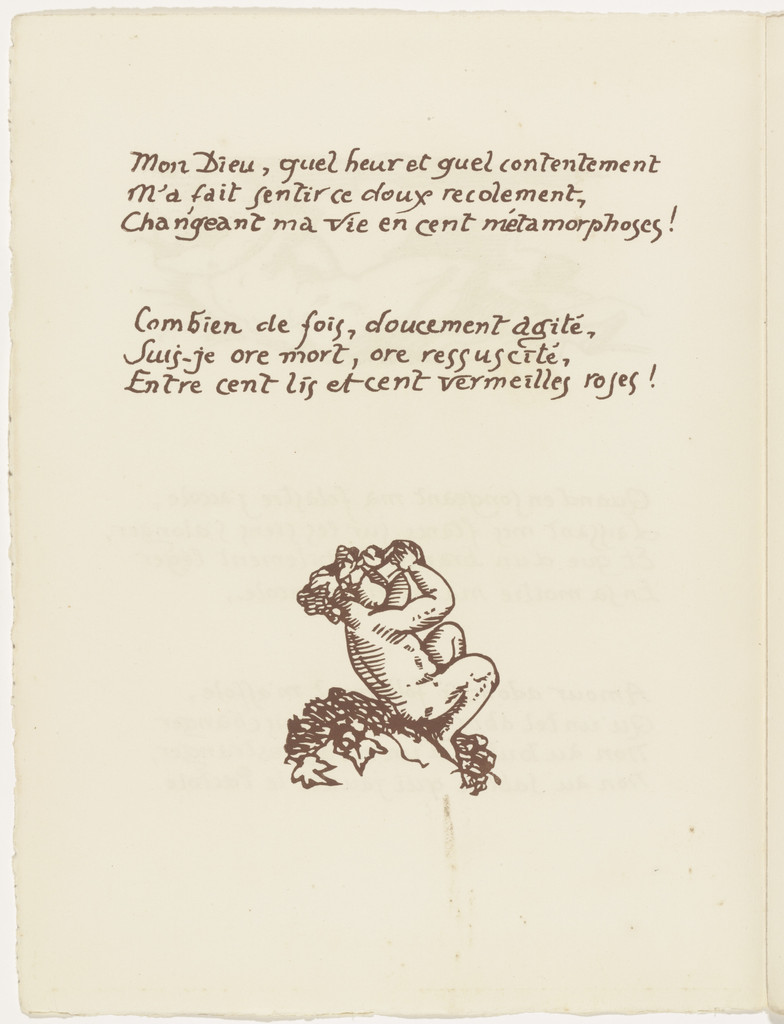 Mon Dieu, quel heur et quel contentement
M'a fait sentir ce doux recolement,
Changeant ma vie en cent métamorphoses!
Combien de fois, doucement agité,
Suis-je ore mort, ore ressuscité,
Entre cent lis et cent vermeilles roses!